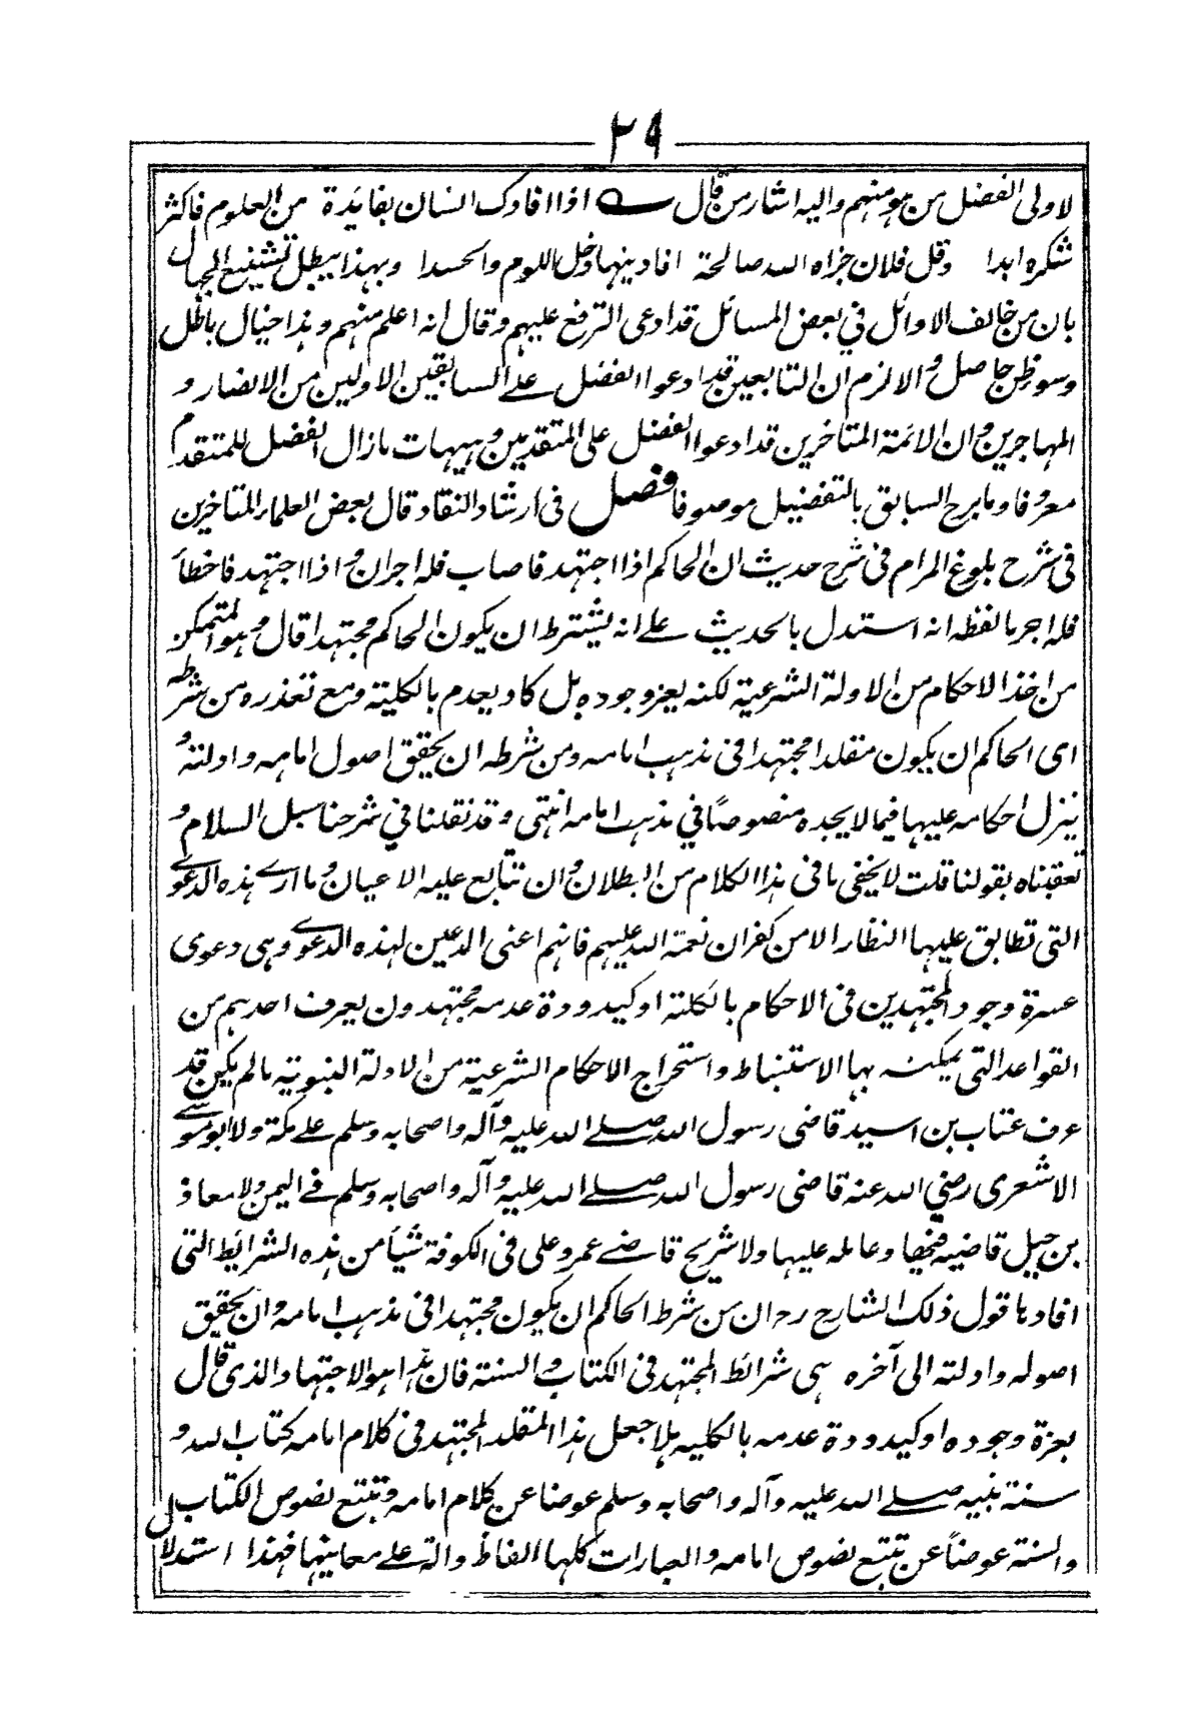 ٢٩
لاولى الفضل من هو منهم واليه اشار من قال ؎ اذا افادك انسان بفائدة من العلوم فاكثر
شكره ابدا وقل فلان جزاه الله صالحة افادنيها وخل اللوم والحسدا وبهذا يبطل تشنيع الجهال
بان من خالف الاوائل في بعض المسائل قد ادعى الترفع عليهم وقال انه اعلم منهم وهذا خيال باطل
وسوظن حاصل والا لزم ان التابعين قد ادعوا الفضل على السابقين الاولين من الانصار و
المهاجرين وان الائمة المتاخرين قد ادعوا الفضل على المتقدمين وهيهات مازال الفضل للمتقدم
معروفا وما برح السابق بالتفضيل موصوفا فصل فى ارشاد النقاد قال بعض العلماء المتاخرين
فى شرح بلوغ المرام فى شرح حديث ان الحاكم اذا اجتهد فاصاب فله اجران واذا اجتهد فاخطأ
فله اجر ما لفظه انه استدل بالحديث على انه يشترط ان يكون الحاكم مجتهدا قال وهو المتمكن
من اخذ الاحكام من الادلة الشرعية لكنه يعز وجوده بل كاد يعدم بالكلية ومع تعذره من شرطه
اى الحاكم ان يكون مقلدا مجتهدا فى مذهب امامه ومن شرطه ان يحقق اصول امامه وادلته و
ينزل احكامه عليها فيما لا يجده منصوصاً في مذهب امامه انتهى وقد نقلنا في شرحنا سبل السلام و
تعقبناه بقولنا قلت لا يخفى ما فى هذا الكلام من البطلان وان تتابع عليه الاعيان وما ارى هذه الدعوى
التى تطابق عليها النظار الا من كفران نعمة الله عليهم فانهم اعنى المدعين لهذه الدعوى وهى دعوى
عسرة وجود المجتهدين فى الاحكام بالكلية او كيدودة عدمه مجتهدون يعرف احدهم من
القواعد التى يمكنه بها الاستنباط واستخراج الاحكام الشرعية من الادلة النبوية مالم يكن قد
عرف عتاب بن اسيد قاضى رسول الله صلى الله عليه وآله واصحابه وسلم على مكة ولا ابو موسى
الاشعرى رضي الله عنه قاضى رسول الله صلى الله عليه وآله واصحابه وسلم فى اليمن ولا معاذ
بن جبل قاضيه فيها وعامله عليها ولا شريح قاضى عمر وعلى فى الكوفة شيأ من هذه الشرائط التى
افادها قول ذلك الشارح رح ان من شرط الحاكم ان يكون مجتهدا فى مذهب امامه وان يحقق
اصوله وادلته الى آخره هى شرائط المجتهد فى الكتاب والسنة فان هذا هو الاجتهاد الذى قال
بعزة وجوده او كيدودة عدمه بالكلية هلا جعل هذا المقلد المجتهد فى كلام امامه كتاب الله و
سنة نبيه صلى الله عليه وآله واصحابه وسلم عوضا عن كلام امامه وتتبع نصوص الكتاب
والسنة عوضاً عن تتبع نصوص امامه والعبارات كلها الفاظ دالة على معانيها فهذا استدلال